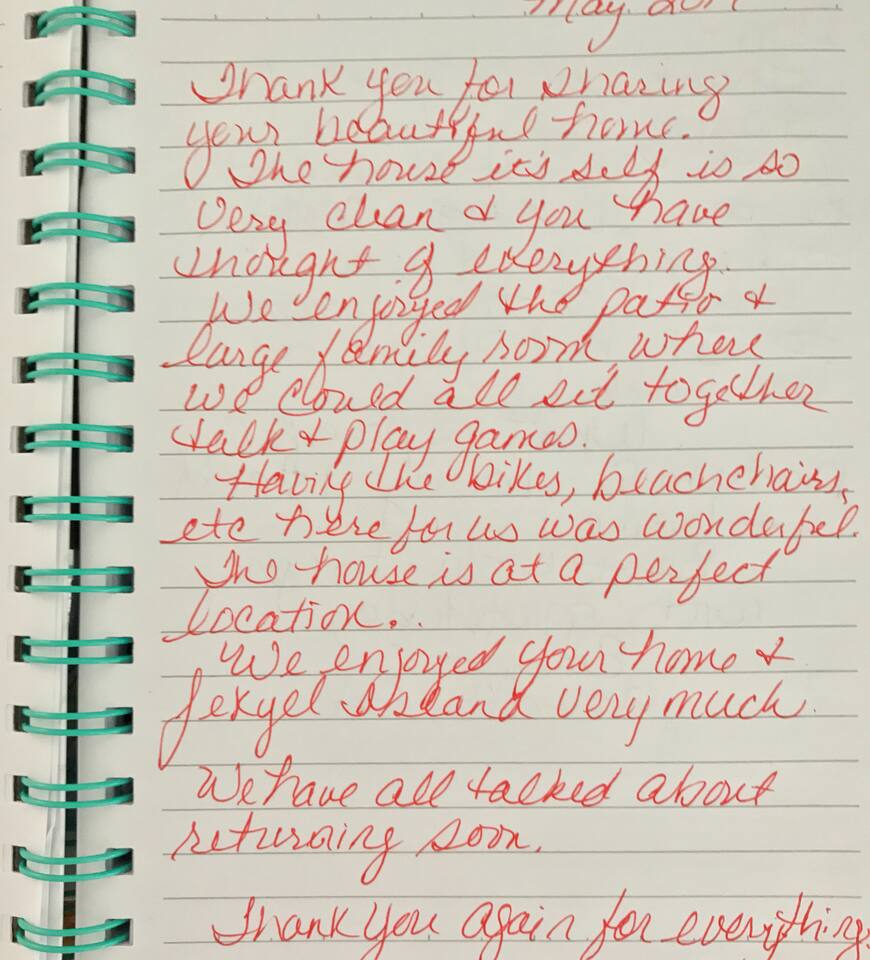 May 201
Thank you for sharing
your beautiful home.
The house it's self is so
very clean & you have
thought of everything.
We enjoyed the patio &
large family room, where
we could all sit together
talk & play games.
Having the bikes, beach chairs,
etc here for us was wonderful.
The house is at a perfect
location..
We enjoyed your home &
Jekyel Island very much.
We have all talked about
returning soon.
Thank you again for everything.